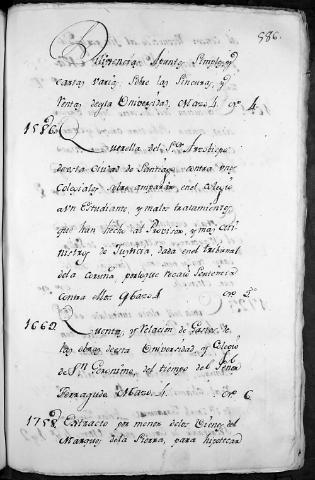 586.
Diferencia, Apuntes simples, y
cartas varias sobre las sincuras, y
Rentas desta Universidad, Mazo 4. nº 4.
1586. Querella del Sor. Arzobispo
desta Ciudad de Santiago contra unos
Colegiales sobre amparar en el Colegio
a un Estudiante, y malos tratamientos
que han hecho al Provisor, y mas Mi-
nistros de Justicia, dada en el tribunal
de la coruña, por lo que recaió Sentencia
contra ellos Mazo 4 nº 5.
1662. Cuenta, y Relacion de Gastos de
las obras desta Universidad, y Colegio
de Sn. Geronimo, del tiempo del Señor
Ferragudo Mazo 4. nº 6
1758. Extracto por menor de los Vienes del
Marques de la Sierra, para hipotecar